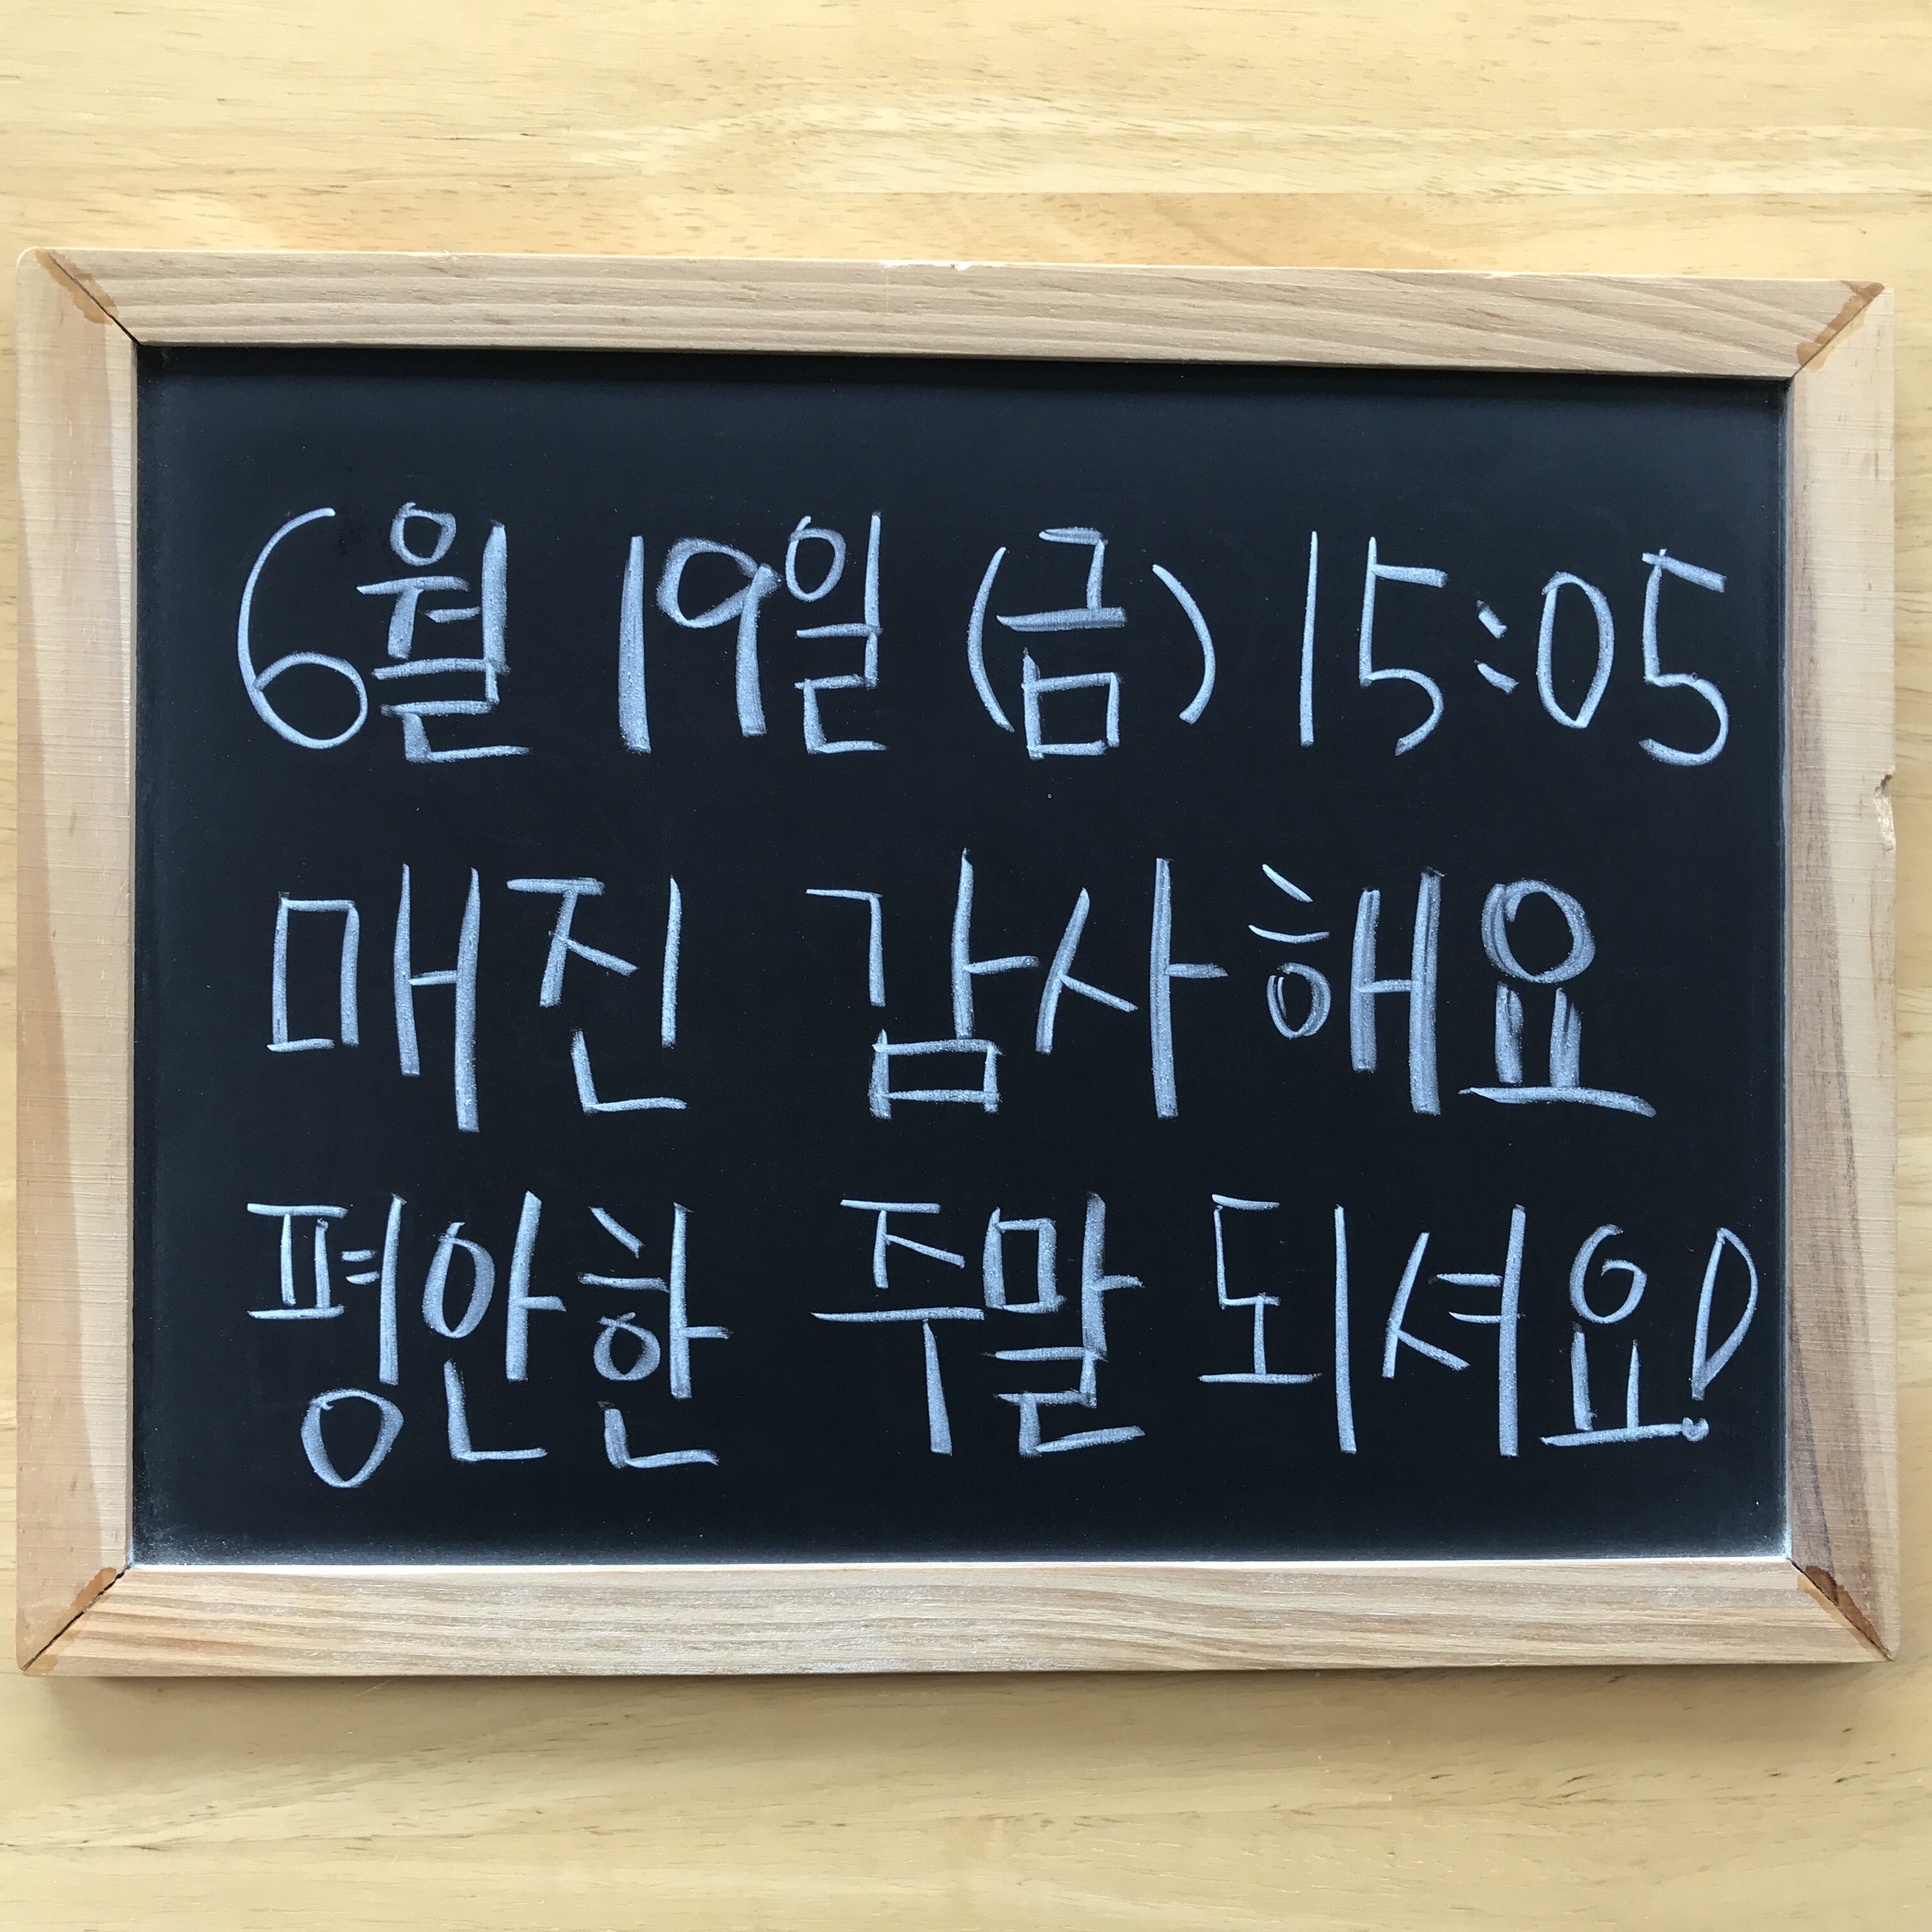 6월 19일 (금) 15:05
매진 감사해요
평안한 주말 되셔요!